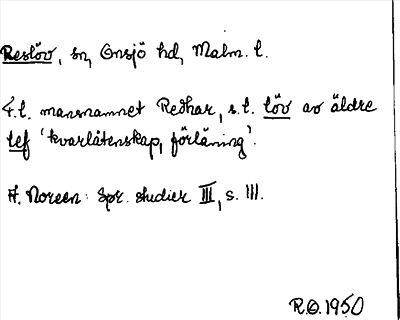 Reslöv, sn, Onsjö hd, Malm. l.
F.l. mansnamnet Redhar, s.l. löv av äldre
lef 'kvarlåtenskap, förläning'.
A. Noreen: Spr. studier III, s. 111.
R.O. 1950